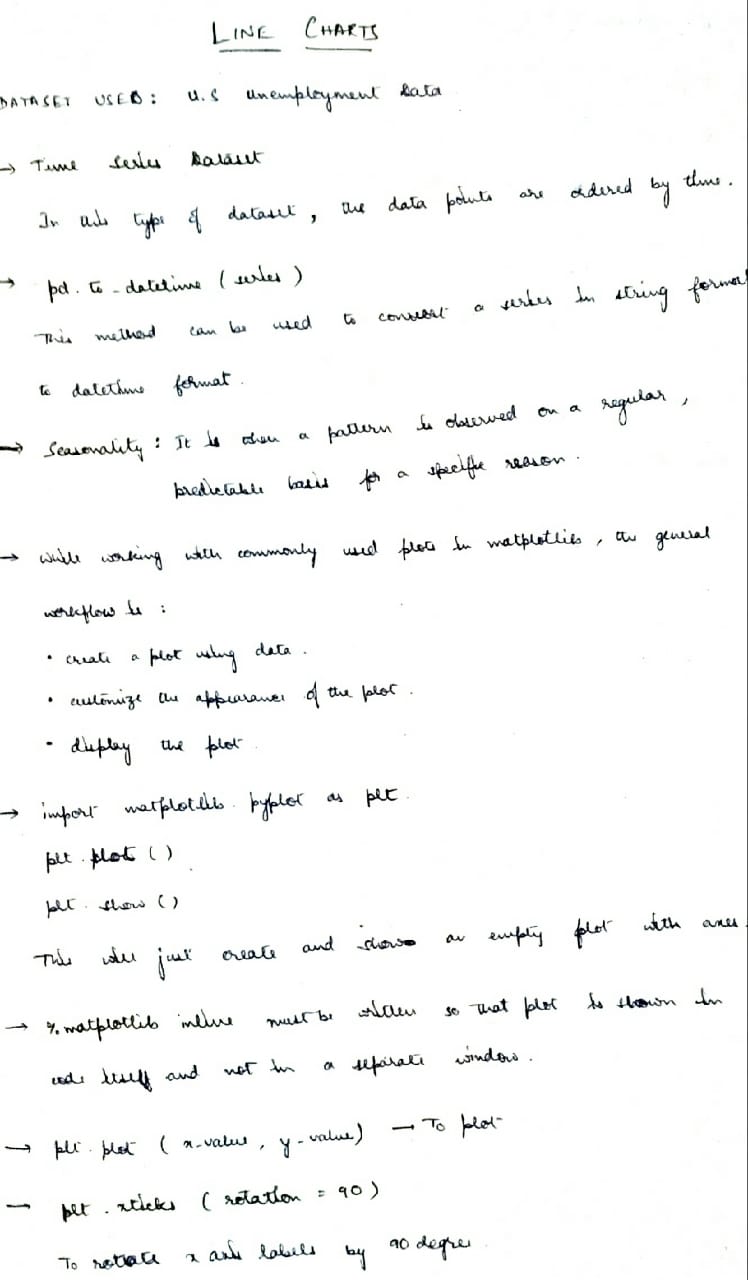 LINE CHARTS
DATASET USED : U.S unemployment Data
→ Time Series Dataset
In this type of dataset, the data points are ordered by time.
→ pd.to_datetime (series)
This method can be used to convert a series in string format
to datetime format.
→ Seasonality : It is when a pattern is observed on a regular,
predictable basis for a specific reason.
→ While working with commonly used plots in matplotlib, the general
workflow is :
• create a plot using data.
• customize the appearance of the plot.
• display the plot
→ import matplotlib.pyplot as plt.
plt.plot()
plt.show()
This will just create and show an empty plot with axes.
→ %matplotlib inline must be written so that plot is shown in
code itself and not in a separate window.
→ plt.plot (x-value, y-value) → To plot
→ plt.xticks (rotation = 90)
To rotate x axis labels by 90 degree